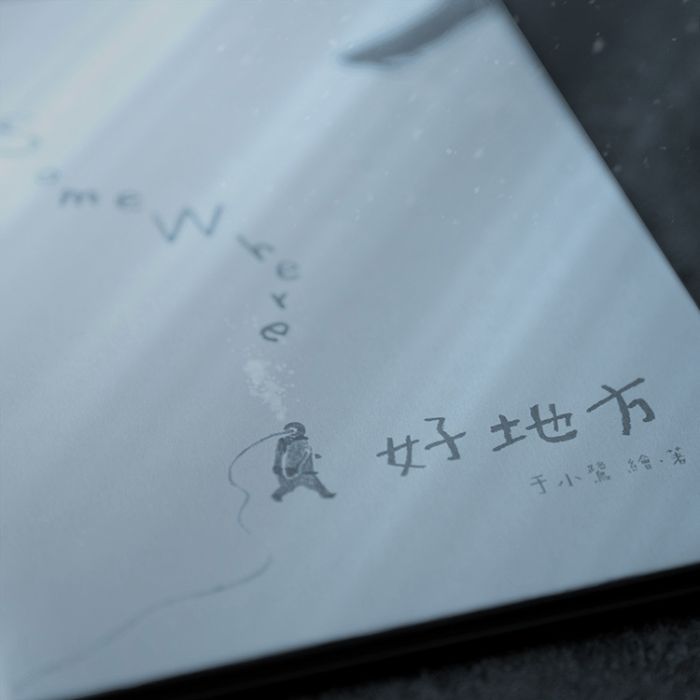 SomeWhere
好地方
于小鷺 繪·著